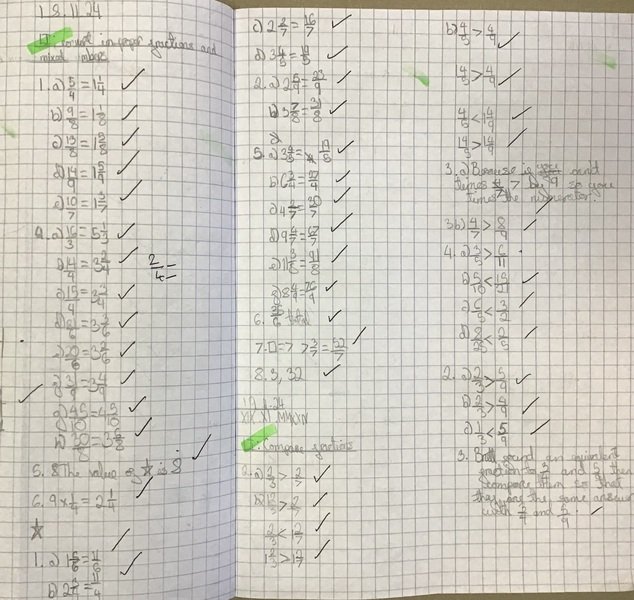 18.11.24
LO: Convert improper fractions and
mixed numbers
1. a) 5/4 = 1 1/4
b) 9/8 = 1 1/8
c) 13/8 = 1 5/8
d) 14/9 = 1 5/9
e) 10/7 = 1 3/7
2. a) 16/3 = 5 1/3
b) 14/4 = 3 2/4
2/4 =
c) 15/4 = 3 3/4
d) 21/6 = 3 3/6
e) 20/6 = 3 2/6
f) 31/9 = 3 4/9
g) 45/10 = 4 5/10
h) 30/8 = 3 6/8
5. 8 The value of ☆ is 8
6. 9 × 1/4 = 2 1/4
☆
1. a) 1 5/6 = 11/6
b) 2 3/4 = 11/4
c) 2 2/7 = 16/7
d) 3 4/5 = 19/5
2. a) 2 5/9 = 23/9
b) 3 7/8 = 31/8
5. a) 3 4/5 = 19/5
b) 6 3/4 = 27/4
c) 4 2/7 = 30/7
d) 9 4/7 = 67/7
e) 11 3/8 = 91/8
f) 8 4/9 = 76/9
6. total
7. □ = 7 > 3/7 = 52/7
8. 3, 32
19.11.24
XIX XI MMXXIV
LO: Compare fractions
2. a) 2/3 > 2/7
2/3 < 1 2/7
1 2/3 > 1 2/7
b) 4/5 > 4/9
4/5 > 4/9
4/5 < 1 4/9
1 4/5 > 1 4/9
3. a) Because is you and
times by 9 so you
times the numerator.
3b) 4/7 > 8/9
4. a) 3/5 > 6/11
b) 5/10 < 15/21
c) 6/5 < 3/2
d) 8/25 < 2/5
2. a) 2/3 > 5/9
b) 2/3 > 4/9
c) 1/3 < 5/9
3. found an equivalent
fraction to and then
compare them so that
they are the same answer
with and